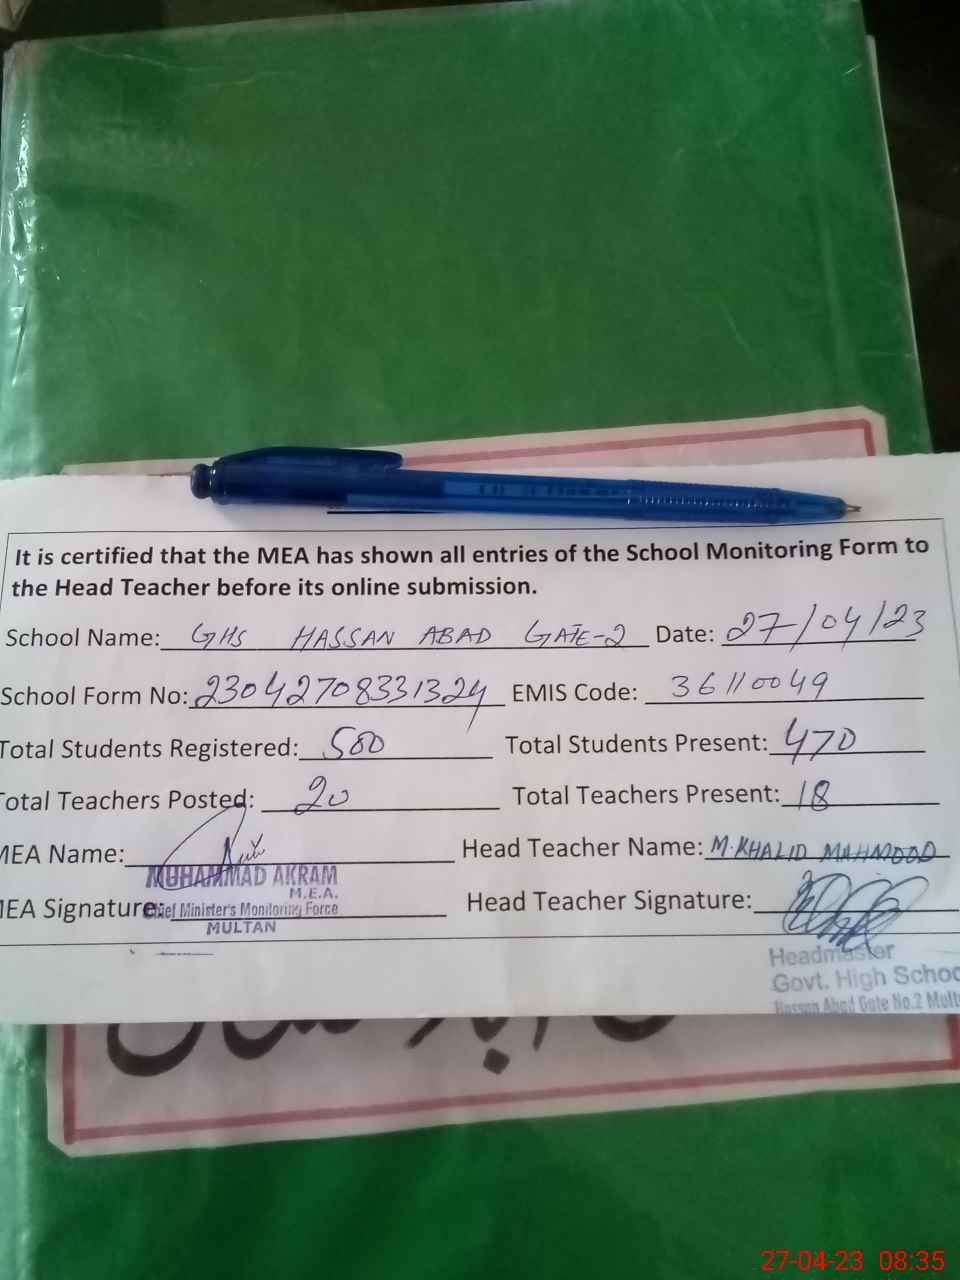 It is certified that the MEA has shown all entries of the School Monitoring Form to
the Head Teacher before its online submission.
School Name: GHS HASSAN ABAD GATE-2 Date: 27/04/23
School Form No: 23042708331324 EMIS Code: 36110049
Total Students Registered: 500 Total Students Present: 470
Total Teachers Posted: 20 Total Teachers Present: 18
MEA Name: Head Teacher Name: M.KHALID MAHMOOD
MUHAMMAD AKRAM
M.E.A.
MEA Signature Chief Minister's Monitoring Force Head Teacher Signature:
MULTAN
Headmaster
Govt. High School
Hassan Abad Gate No.2 Mult
27-04-23 08:35